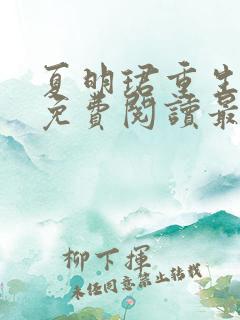 夏明珺重生
免費閱讀最
柳下揮
未经同意禁止转载